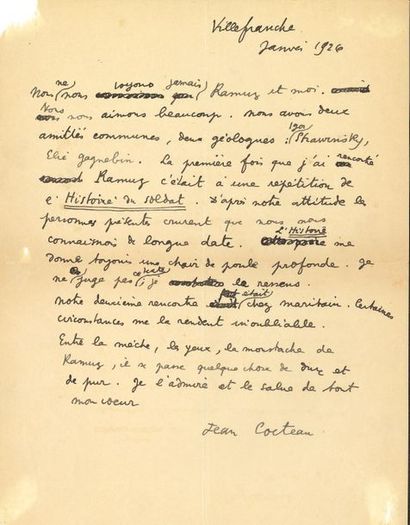 Villefranche
Janvier 1926
Nous ne nous voyons jamais Ramuz et moi.
Nous nous aimons beaucoup. nous avons deux
amitiés communes, deux géologues : Igor Strawinsky,
Elie gagnebin. La première fois que j'ai rencontré
Ramuz c'était à une répétition de
l'Histoire du soldat. D'après notre attitude les
personnes présentes crurent que nous nous
connaissions de longue date. L'Histoire me
donne toujours une chair de poule profonde. Je
ne la juge pas, je la ressens.
notre deuxième rencontre était chez maritain. Certaines
circonstances me la rendent inoubliable.
Entre la mèche, les yeux, la moustache de
Ramuz, il se passe quelque chose de dur et
de pur. Je l'admire et le salue de tout
mon coeur
Jean Cocteau